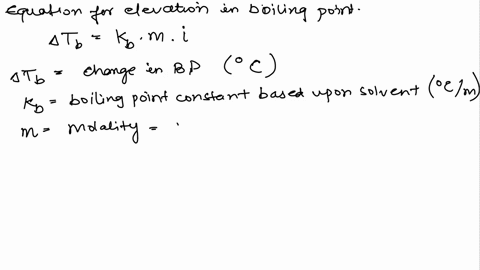 Equation for elevation in boiling point.
△T_b = K_b . m . i
△T_b = change in BP (°C)
K_b = boiling point constant based upon solvent (°C/m)
m = molality =